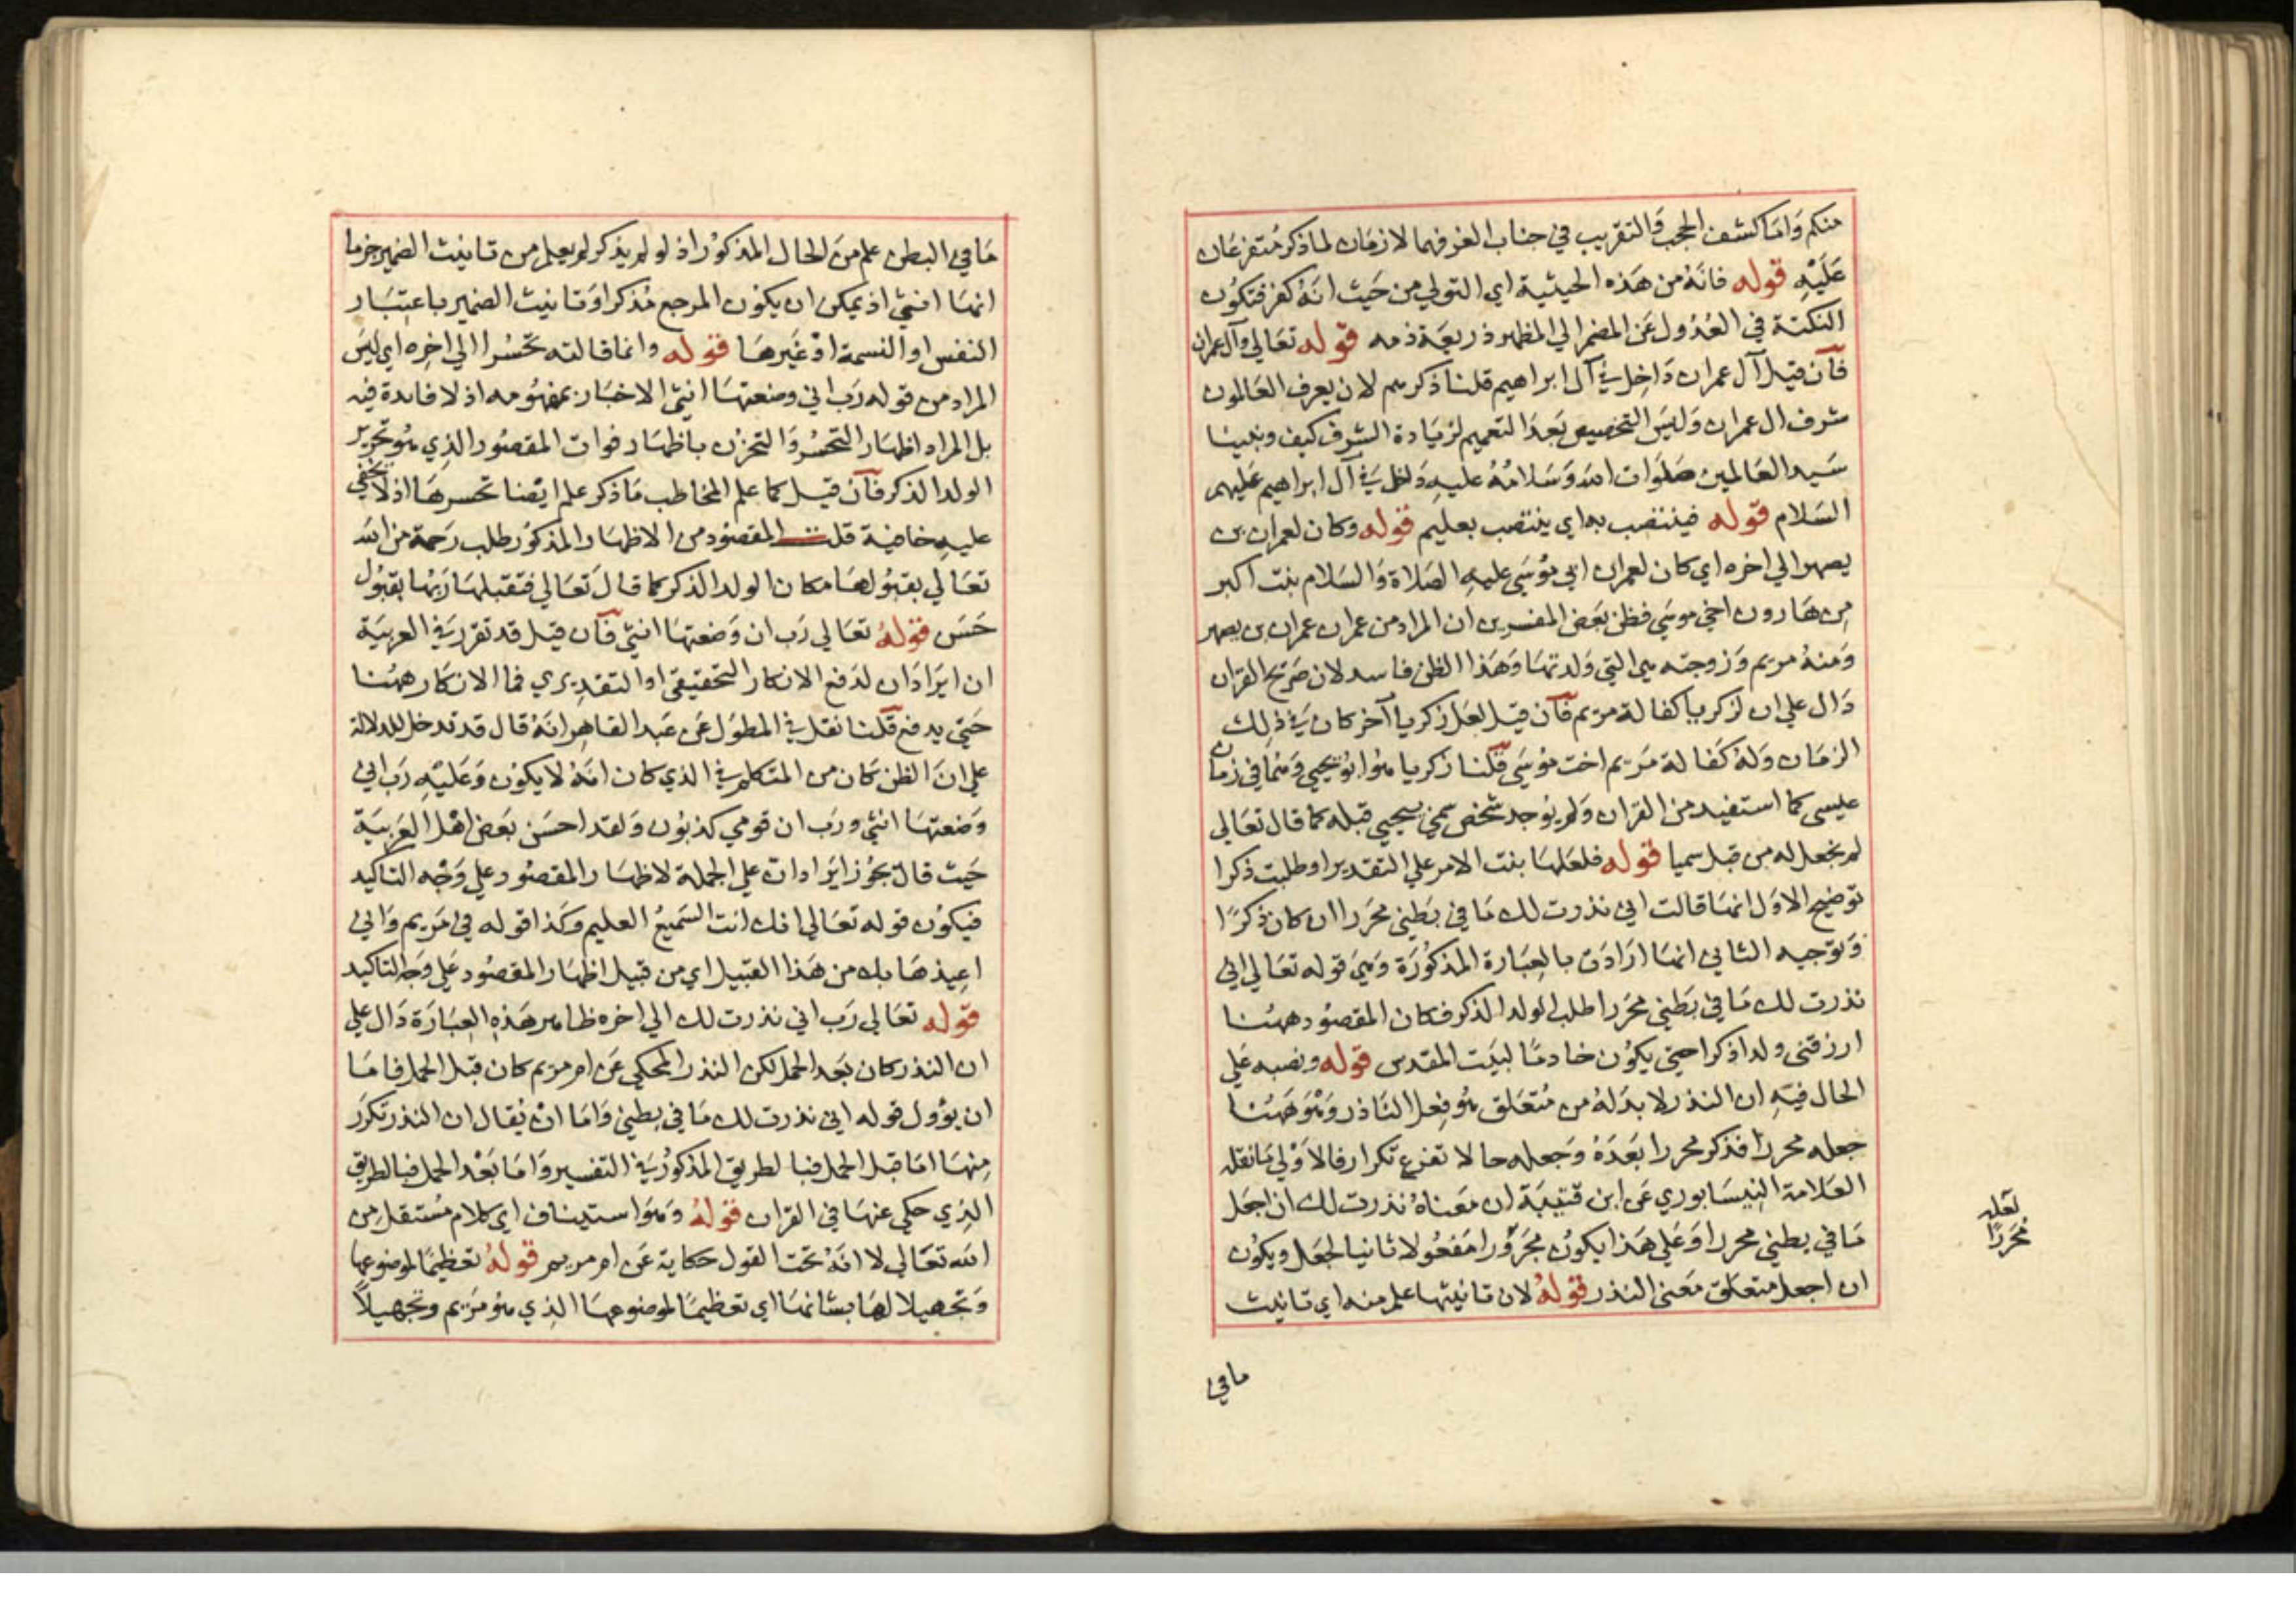 منكم وَامَا كشف الحجب وَالتقريب في جناب العز فهما لازمَان لما ذكر مُتفرعَان
عَلَيْهِ قوله فانهُ من هَذه الحيثية اي التولي من حَيث انهُ كفر فتكوُن
النكتة في العُدُول عَن المضمر الي المظهر ذريعَة ذمه قوله تعَالي وآل عمران
فآن قيل آل عمران دَاخِل في آل ابراهيم قلنا ذكرهم لان يعرف العَالمون
شرف ال عمران وَليسَ التخصيص بَعد التعميم لزيَادة الشرف كيف ونبينا
سَيد العَالمين صَلوَات الله وَسَلامُهُ عليهِ دَاخل في آل ابراهيم عَليهم
السَلام قوله فينتصب به اي ينتصب بعليم قوله وكان لعمران بن
يصهر الي اخره اي كان لعمران ابي موُسَي عليهِ الصَلاة وَالسَلام بنت اكبر
من هَارون اخي موسَي فظن بَعض المفسرين ان المراد من عمران عمران بن يصهر
وَمنهُ مريم وَزوجته هي التي وَلدتهَا وَهَذا الظن فاسد لان صَريح القران
دَال علي ان لزكريا كفالة مريم فآن قيل لعَل زكريا آخر كان في ذلِك
الزمَان وَلهُ كَفالة مَريم اخت موُسَي قلنا زكريا هوُ ابوُ يحيي وَهُما في زمان
عليسي كما استفيد من القران وَلم يوُجد شخص سمي بيحيي قبله كما قال تعَالي
لم نجعل له من قبل سميا قوله فلعَلهَا بنت الامر علي التقدير او طلبت ذكرا
توضيح الاوَل انهَا قالت اني نذرت لك مَا في بَطني محرَرا ان كان ذكرًا
وَتوجيه الثاني انهَا ارَادَت بالعِبَارة المذكوُرَة وَهيَ قوله تعَالي اني
نذرت لك مَا في بَطني محرَرا طلب الولد الذكر فكان المقصوُد ههُنا
ارزقني ولدا ذكرا حتي يكوُن خادمًا لبيَت المقدس قوله ونصبه عَلي
الحال فيَهِ ان النذر لا بدَ لهُ من مُتعَلق هُو فِعل النَاذر وَهُوَ هَهُنا
جعله محررًا فذكر محررا بَعَدَهُ وَجَعله حالا تفرع تكرار فالاوَلي مَا نقله
العَلامَة النيسَابوري عَن ابن قتيبَة ان مَعَناهُ نذرت لك ان اجعَل
مَا في بطني محررا وَعَلي هَذا يكوُن محرَرا مَفعُولا ثانيا لجعَل ويكوُن
ان اجعل متعلق مَعَني النذر قوله لان تانيثها علم منه اي تانيث
لعَله
مُحَررًا
مافي
مَا في البطن علم منَ الحَال المذكوُر اذ لو لم يذكر لم يعلم من تانيث الضمير جزما
انهَا انثي اذ يمكن ان يكوُن المرجع مُذكرا وَتانيث الضمير باعتِبَار
النفس او النسمة اوْ غَيرهَا قوله وانما قالته تحسُرا الي اخِره اي ليسَ
المراد من قوله رَب اني وضعتهَا انثي الاخبَار بمفهُومه اذ لا فائدة فيه
بل المراد اظهَار التحسُر وَالتحزُن باظهَار فوات المقصُود الذِي هُو تحرير
الولد الذكر فآن قيل كما علم المخاطب مَا ذكر علم ايضا تحسرهَا اذ لا يخفي
عليهِ خافيَة قلت المقصوُد من الاظهَار المذكوُر طلب رَحمة من الله
تعَالي بقبُولهَا مكان الولد الذكر كما قالَ تعَالي فتقبلهَا رَبهُا بقبُول
حَسَن قولهُ تعَالي رَب ان وَضعتهَا انثي فآن قيل قد تقرر في العربيَة
ان ايرَاد ان لدَفع الانكار التحقيقي او التقديري فما الانكار ههُنا
حَتي يدفع قلنا نقل في المطوَل عَن عَبد القاهِر انهُ قال قد تدخل للدلالة
علي انَ الظن كان من المتكلم في الذي كان انهُ لا يكوُن وَعَليْهِ رَب اني
وَضعتهَا انثي ورَب ان قومي كذبوُن وَلقد احسَن بَعض اهْل العَربيَة
حَيث قال يجوُز ايَراد ان علي الجملة لاظهَار المقصُود علي وَجْه التاكيد
فيكوُن قوله تعَالي انك انت السَميعُ العليم وَكَذا قوله في مَريم وَاني
اعِيذهَا بك من هَذا القبيل اي من قبيل اظهَار المقصُود عَلي وَجه التاكيد
قوله تعَالي رَب اني نذرت لك الي اخره ظاهر هَذهِ العبَارَة دَال علي
ان النذر كان بَعَد الحمل لكن النذر المحكي عَن ام مريم كان قبل الحمل فامَا
ان يؤول قوله اني نذرت لك مَا في بطني وَامَا انْ يُقال ان النذر تكرَر
مِنهَا امَا قبل الحمل فبالطريق المذكوُر في التفسير وَامَا بَعْد الحمل فبالطريق
الذِي حكي عنهَا في القران قولهُ وَهوَ استيناف اي كلام مُستقل من
الله تعَالي لا انهُ تحت القول حكاية عَن ام مريم قولهُ تعَظيمًا لموضوعها
وَتجهيلا لهَا بشانهَا اي تعَظيمًا لموضوعهَا الذِي هوُ مَريم وتجهيلاً